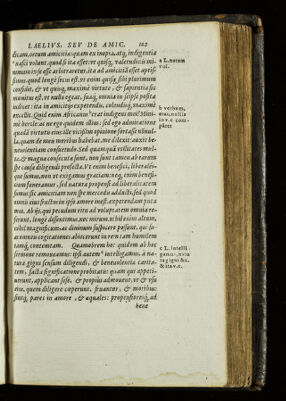 LAELIVS. SEV DE AMIC. 102
dicam, ortum amicitiae: quam ex inopia, atq; indigentia
nasci volunt. quod si ita esset: vt quisq; minimum
in se esse arbitraretur, ita ad amicitiā esset aptissimus.
quod longè secus est. vt enim quisq; sibi plurimum
confidit, & vt quisq; maximè virtute, & sapientia sic
munitus est, vt nullo egeat, suaq; omnia in seipso posita
iudicet: ita in amicitijs expetendis, colendisq; maximè
excellit. Quid enim Africanus indigens mei? Minimè
hercle. ac ne ego quidem illius: sed ego admiratione
quadā virtutis eius, ille vicissim opinione fortasse nonnulla,
quam de meis moribus habebat, me dilexit: auxit beneuolentiam
consuetudo. Sed quamquā vtilitates multae,
& magnae consecutae sunt, non sunt tamen ab earum
spe causae diligendi profectae. Vt enim benefici, liberalesque
sumus, non vt exigamus gratiam: neq; enim beneficium
foeneramur, sed natura propensi ad liberalitatem
sumus: sic amicitiam non spe mercedis adducti, sed quod
omnis eius fructus in ipso amore inest, expetendam putamus.
Ab ijs, qui pecudum ritu ad voluptatem omnia referunt,
longè dissentimus. nec mirum. nihil enim altum,
nihil magnificum, ac diuinum suspicere possunt, qui suas
omneis cogitationes abiecerunt in rem tam humilem,
tamq; contemtam. Quamobrem hos quidem ab hoc
sermone remoueamus: ipsi autem intelligamus, à natura
gigni sensum diligendi, & beneuolentiae caritatem,
facta significatione probitatis: quam qui appetiuerunt,
applicant sese, & propius admouent, vt & vsu
eius, quem diligere coeperunt, fruantur, & moribus:
sintq; pares in amore, & aequales: propensioresq; ad
bene
a L. natum
b verbum,
c L. intelli